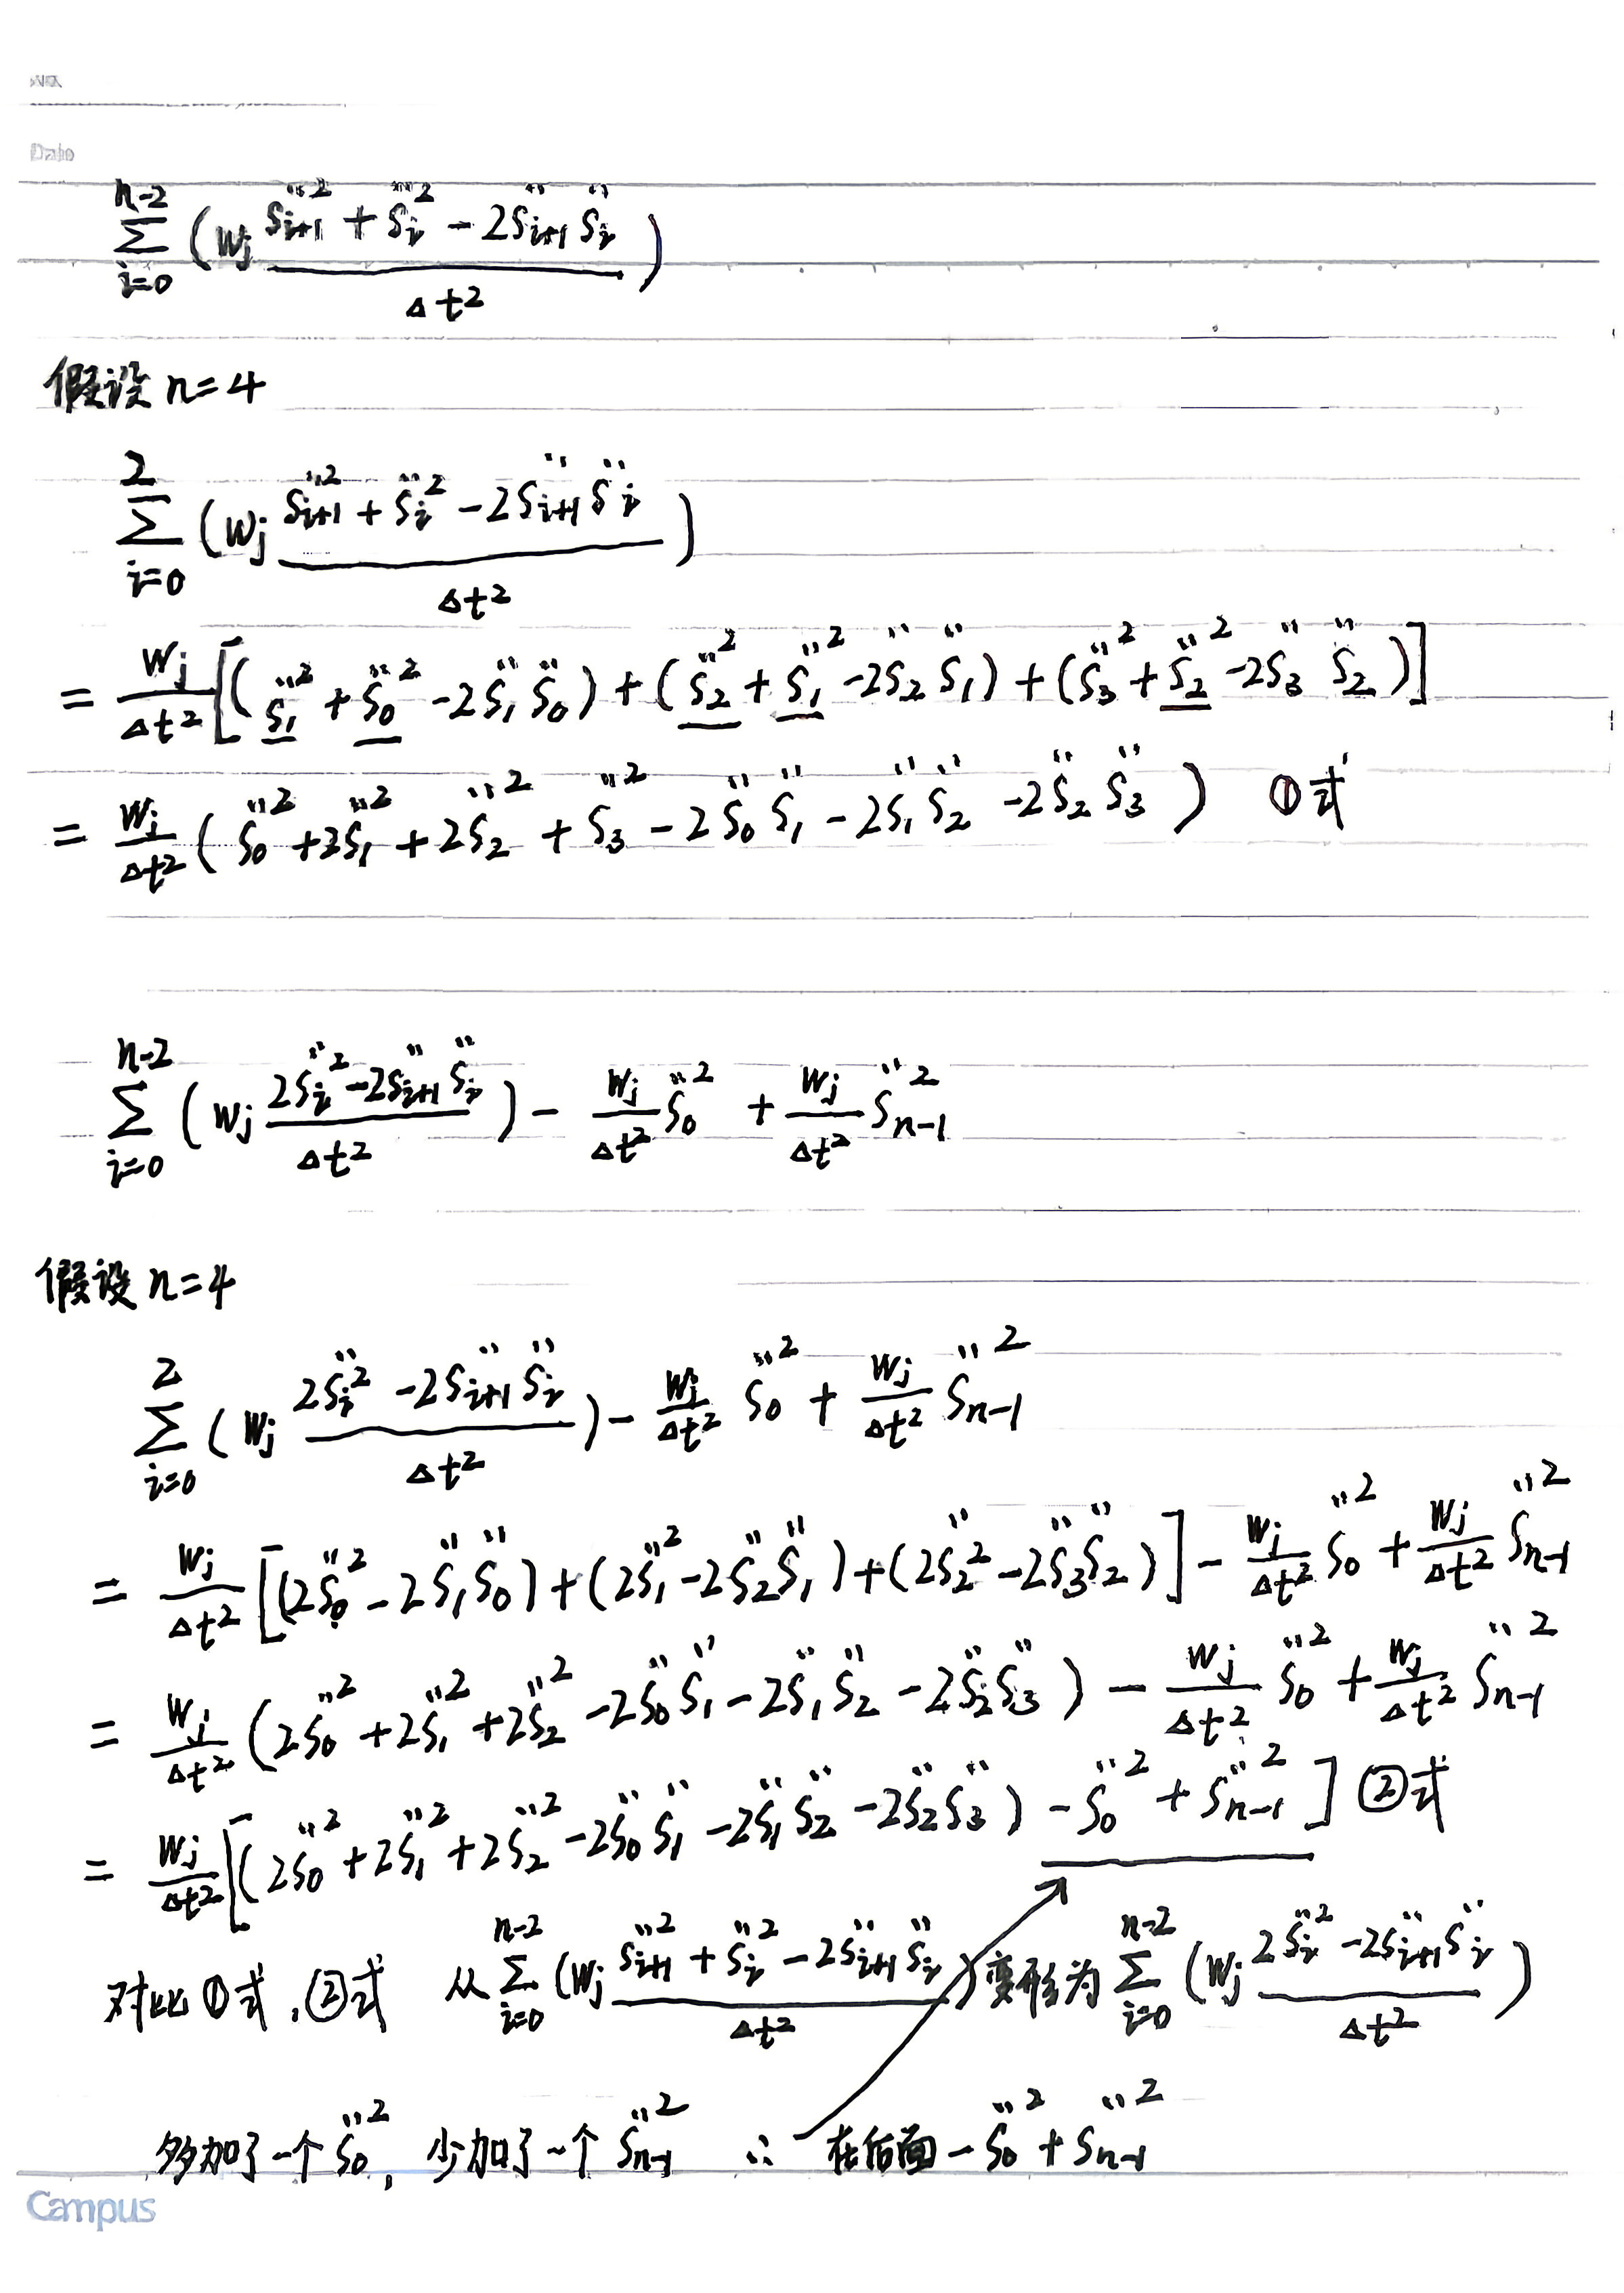 Date
$\sum_{i=0}^{n-2} (w_j \frac{\ddot{s}_{i+1}^2 + \ddot{s}_i^2 - 2\ddot{s}_{i+1}\ddot{s}_i}{\Delta t^2})$
假设 n=4
$\sum_{i=0}^{2} (w_j \frac{\ddot{s}_{i+1}^2 + \ddot{s}_i^2 - 2\ddot{s}_{i+1}\ddot{s}_i}{\Delta t^2})$
$= \frac{w_j}{\Delta t^2}[(\ddot{s}_1^2 + \ddot{s}_0^2 - 2\ddot{s}_1\ddot{s}_0) + (\ddot{s}_2^2 + \ddot{s}_1^2 - 2\ddot{s}_2\ddot{s}_1) + (\ddot{s}_3^2 + \ddot{s}_2^2 - 2\ddot{s}_3\ddot{s}_2)]$
$= \frac{w_j}{\Delta t^2}(\ddot{s}_0^2 + 2\ddot{s}_1^2 + 2\ddot{s}_2^2 + \ddot{s}_3^2 - 2\ddot{s}_0\ddot{s}_1 - 2\ddot{s}_1\ddot{s}_2 - 2\ddot{s}_2\ddot{s}_3)$ ①式
$\sum_{i=0}^{n-2} (w_j \frac{2\ddot{s}_i^2 - 2\ddot{s}_{i+1}\ddot{s}_i}{\Delta t^2}) - \frac{w_j}{\Delta t^2}\ddot{s}_0^2 + \frac{w_j}{\Delta t^2}\ddot{s}_{n-1}^2$
假设 n=4
$\sum_{i=0}^{2} (w_j \frac{2\ddot{s}_i^2 - 2\ddot{s}_{i+1}\ddot{s}_i}{\Delta t^2}) - \frac{w_j}{\Delta t^2}\ddot{s}_0^2 + \frac{w_j}{\Delta t^2}\ddot{s}_{n-1}^2$
$= \frac{w_j}{\Delta t^2}[(2\ddot{s}_0^2 - 2\ddot{s}_1\ddot{s}_0) + (2\ddot{s}_1^2 - 2\ddot{s}_2\ddot{s}_1) + (2\ddot{s}_2^2 - 2\ddot{s}_3\ddot{s}_2)] - \frac{w_j}{\Delta t^2}\ddot{s}_0^2 + \frac{w_j}{\Delta t^2}\ddot{s}_{n-1}^2$
$= \frac{w_j}{\Delta t^2}(2\ddot{s}_0^2 + 2\ddot{s}_1^2 + 2\ddot{s}_2^2 - 2\ddot{s}_0\ddot{s}_1 - 2\ddot{s}_1\ddot{s}_2 - 2\ddot{s}_2\ddot{s}_3) - \frac{w_j}{\Delta t^2}\ddot{s}_0^2 + \frac{w_j}{\Delta t^2}\ddot{s}_{n-1}^2$
$= \frac{w_j}{\Delta t^2}[(2\ddot{s}_0^2 + 2\ddot{s}_1^2 + 2\ddot{s}_2^2 - 2\ddot{s}_0\ddot{s}_1 - 2\ddot{s}_1\ddot{s}_2 - 2\ddot{s}_2\ddot{s}_3) - \ddot{s}_0^2 + \ddot{s}_{n-1}^2]$ ②式
对比①式,②式 从 $\sum_{i=0}^{n-2} (w_j \frac{\ddot{s}_{i+1}^2 + \ddot{s}_i^2 - 2\ddot{s}_{i+1}\ddot{s}_i}{\Delta t^2})$ 变形为 $\sum_{i=0}^{n-2} (w_j \frac{2\ddot{s}_i^2 - 2\ddot{s}_{i+1}\ddot{s}_i}{\Delta t^2})$
多加了一个 $\ddot{s}_0^2$, 少加了一个 $\ddot{s}_{n-1}^2$ ∴ 在后面 $-\ddot{s}_0^2 + \ddot{s}_{n-1}^2$
Campus